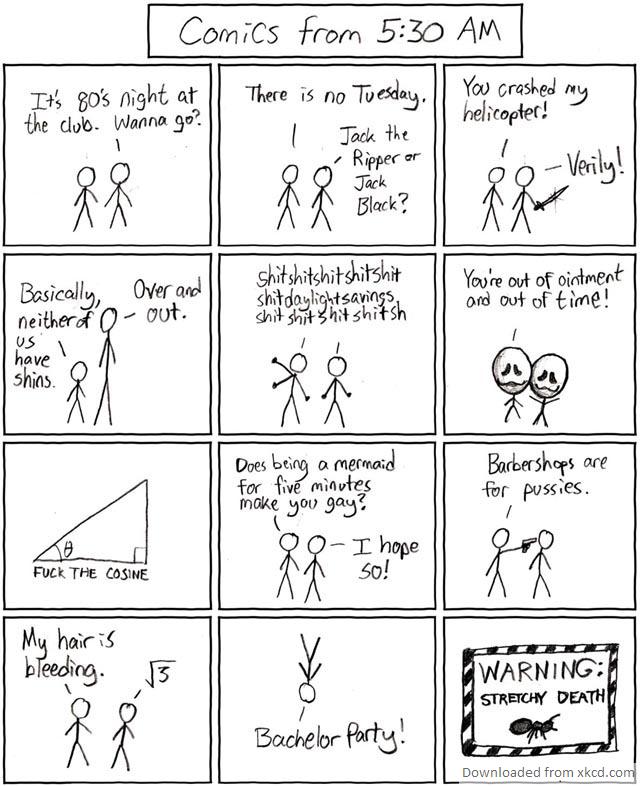 Comics from 5:30 AM
It's 80's night at
the club. Wanna go?
There is no Tuesday.
Jack the
Ripper or
Jack
Black?
You crashed my
helicopter!
Verily!
Basically,
neither of
us
have
shins.
Over and
out.
Shitshitshitshitshit
shitdaylightsavings
shitshitshitshitsh
You're out of ointment
and out of time!
θ
FUCK THE COSINE
Does being a mermaid
for five minutes
make you gay?
I hope
so!
Barbershops are
for pussies.
My hair is
bleeding.
√3
Bachelor Party!
WARNING:
STRETCHY DEATH
Downloaded from xkcd.com